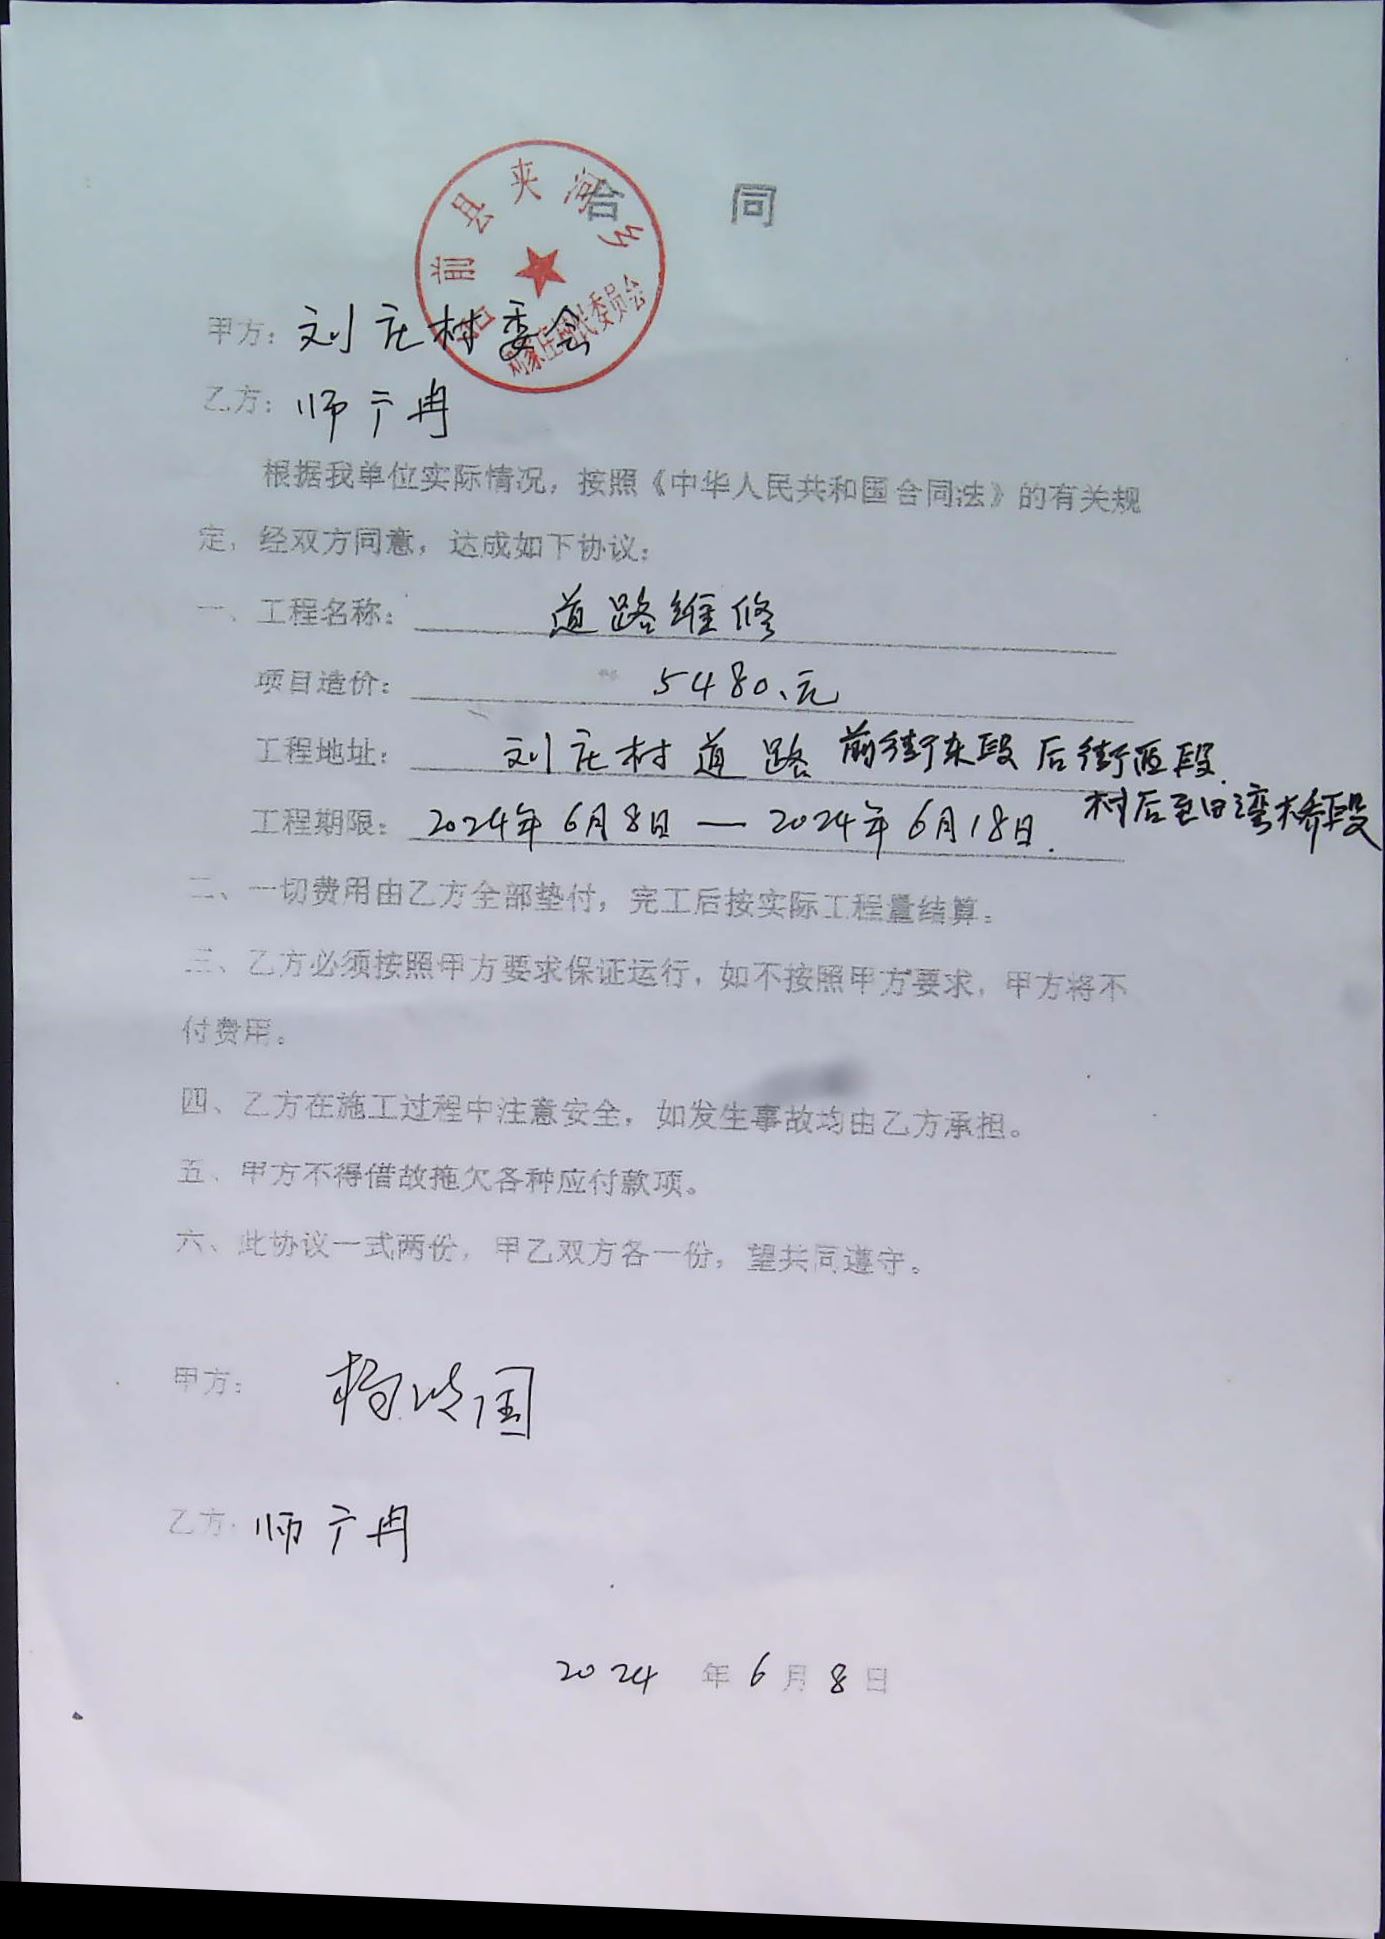 合 同
台前县夹河乡
刘家庄村村民委员会
甲方：刘庄村委会
乙方：师广冉
根据我单位实际情况，按照《中华人民共和国合同法》的有关规
定，经双方同意，达成如下协议：
一、工程名称：道路维修
项目造价：5480.元
工程地址：刘庄村道路 前街东段 后街西段
村后至白湾桥段
工程期限：2024年6月8日—2024年6月18日.
二、一切费用由乙方全部垫付，完工后按实际工程量结算。
三、乙方必须按照甲方要求保证运行，如不按照甲方要求，甲方将不
付费用。
四、乙方在施工过程中注意安全，如发生事故均由乙方承担。
五、甲方不得借故拖欠各种应付款项。
六、此协议一式两份，甲乙双方各一份，望共同遵守。
甲方：杨 国
乙方：师广冉
2024 年 6 月 8 日